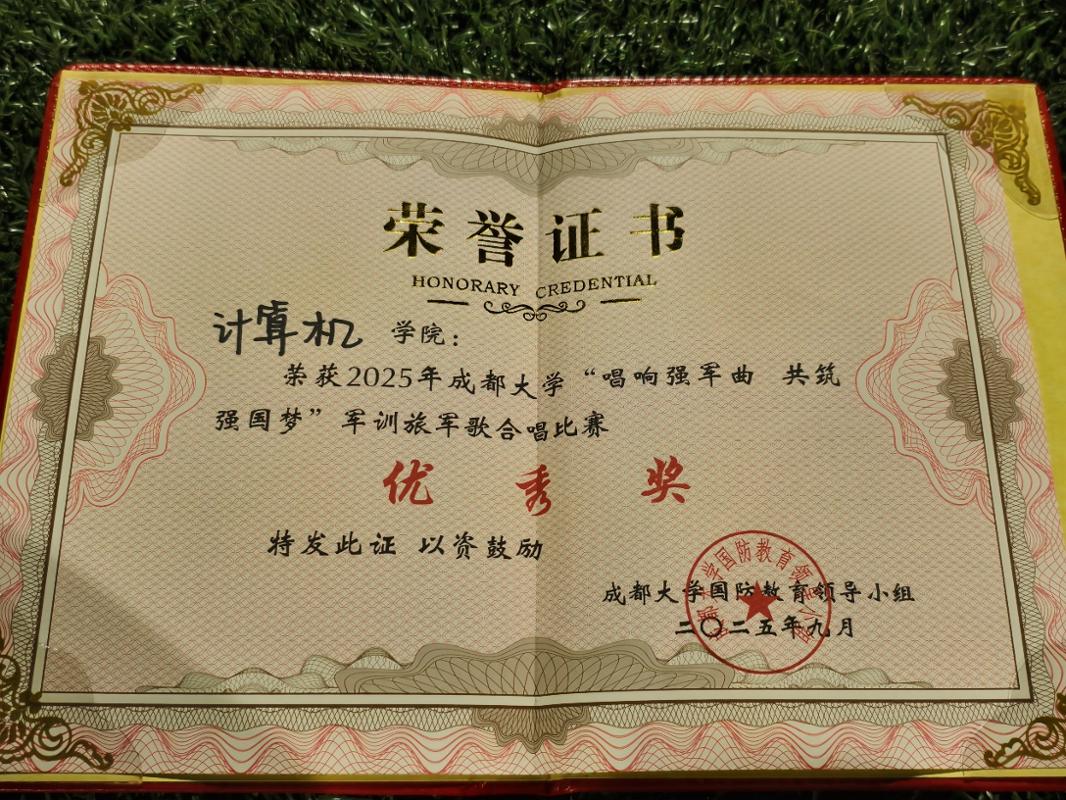 荣誉证书
HONORARY CREDENTIAL
计算机 学院：
荣获2025年成都大学“唱响强军曲 共筑
强国梦”军训旅军歌合唱比赛
优秀奖
特发此证 以资鼓励
成都大学国防教育领导小组
二〇二五年九月
成都大学国防教育领导小组